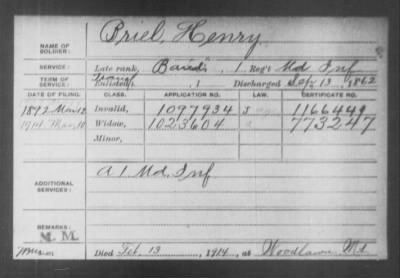 NAME OF SOLDIER: Priel, Henry
SERVICE: Late rank, Band, 1 Reg't Md Inf
TERM OF SERVICE: Enlisted Discharged Sep 13, 1862
DATE OF FILING. CLASS. APPLICATION NO. LAW. CERTIFICATE NO.
1892 Mar 12 Invalid, 1097934 1166449
1914 Mar 10 Widow, 1023604 773247
Minor,
ADDITIONAL SERVICES: A 1 Md Inf
REMARKS:
M M
Died Feb. 13, 1914, at Woodlawn Md.